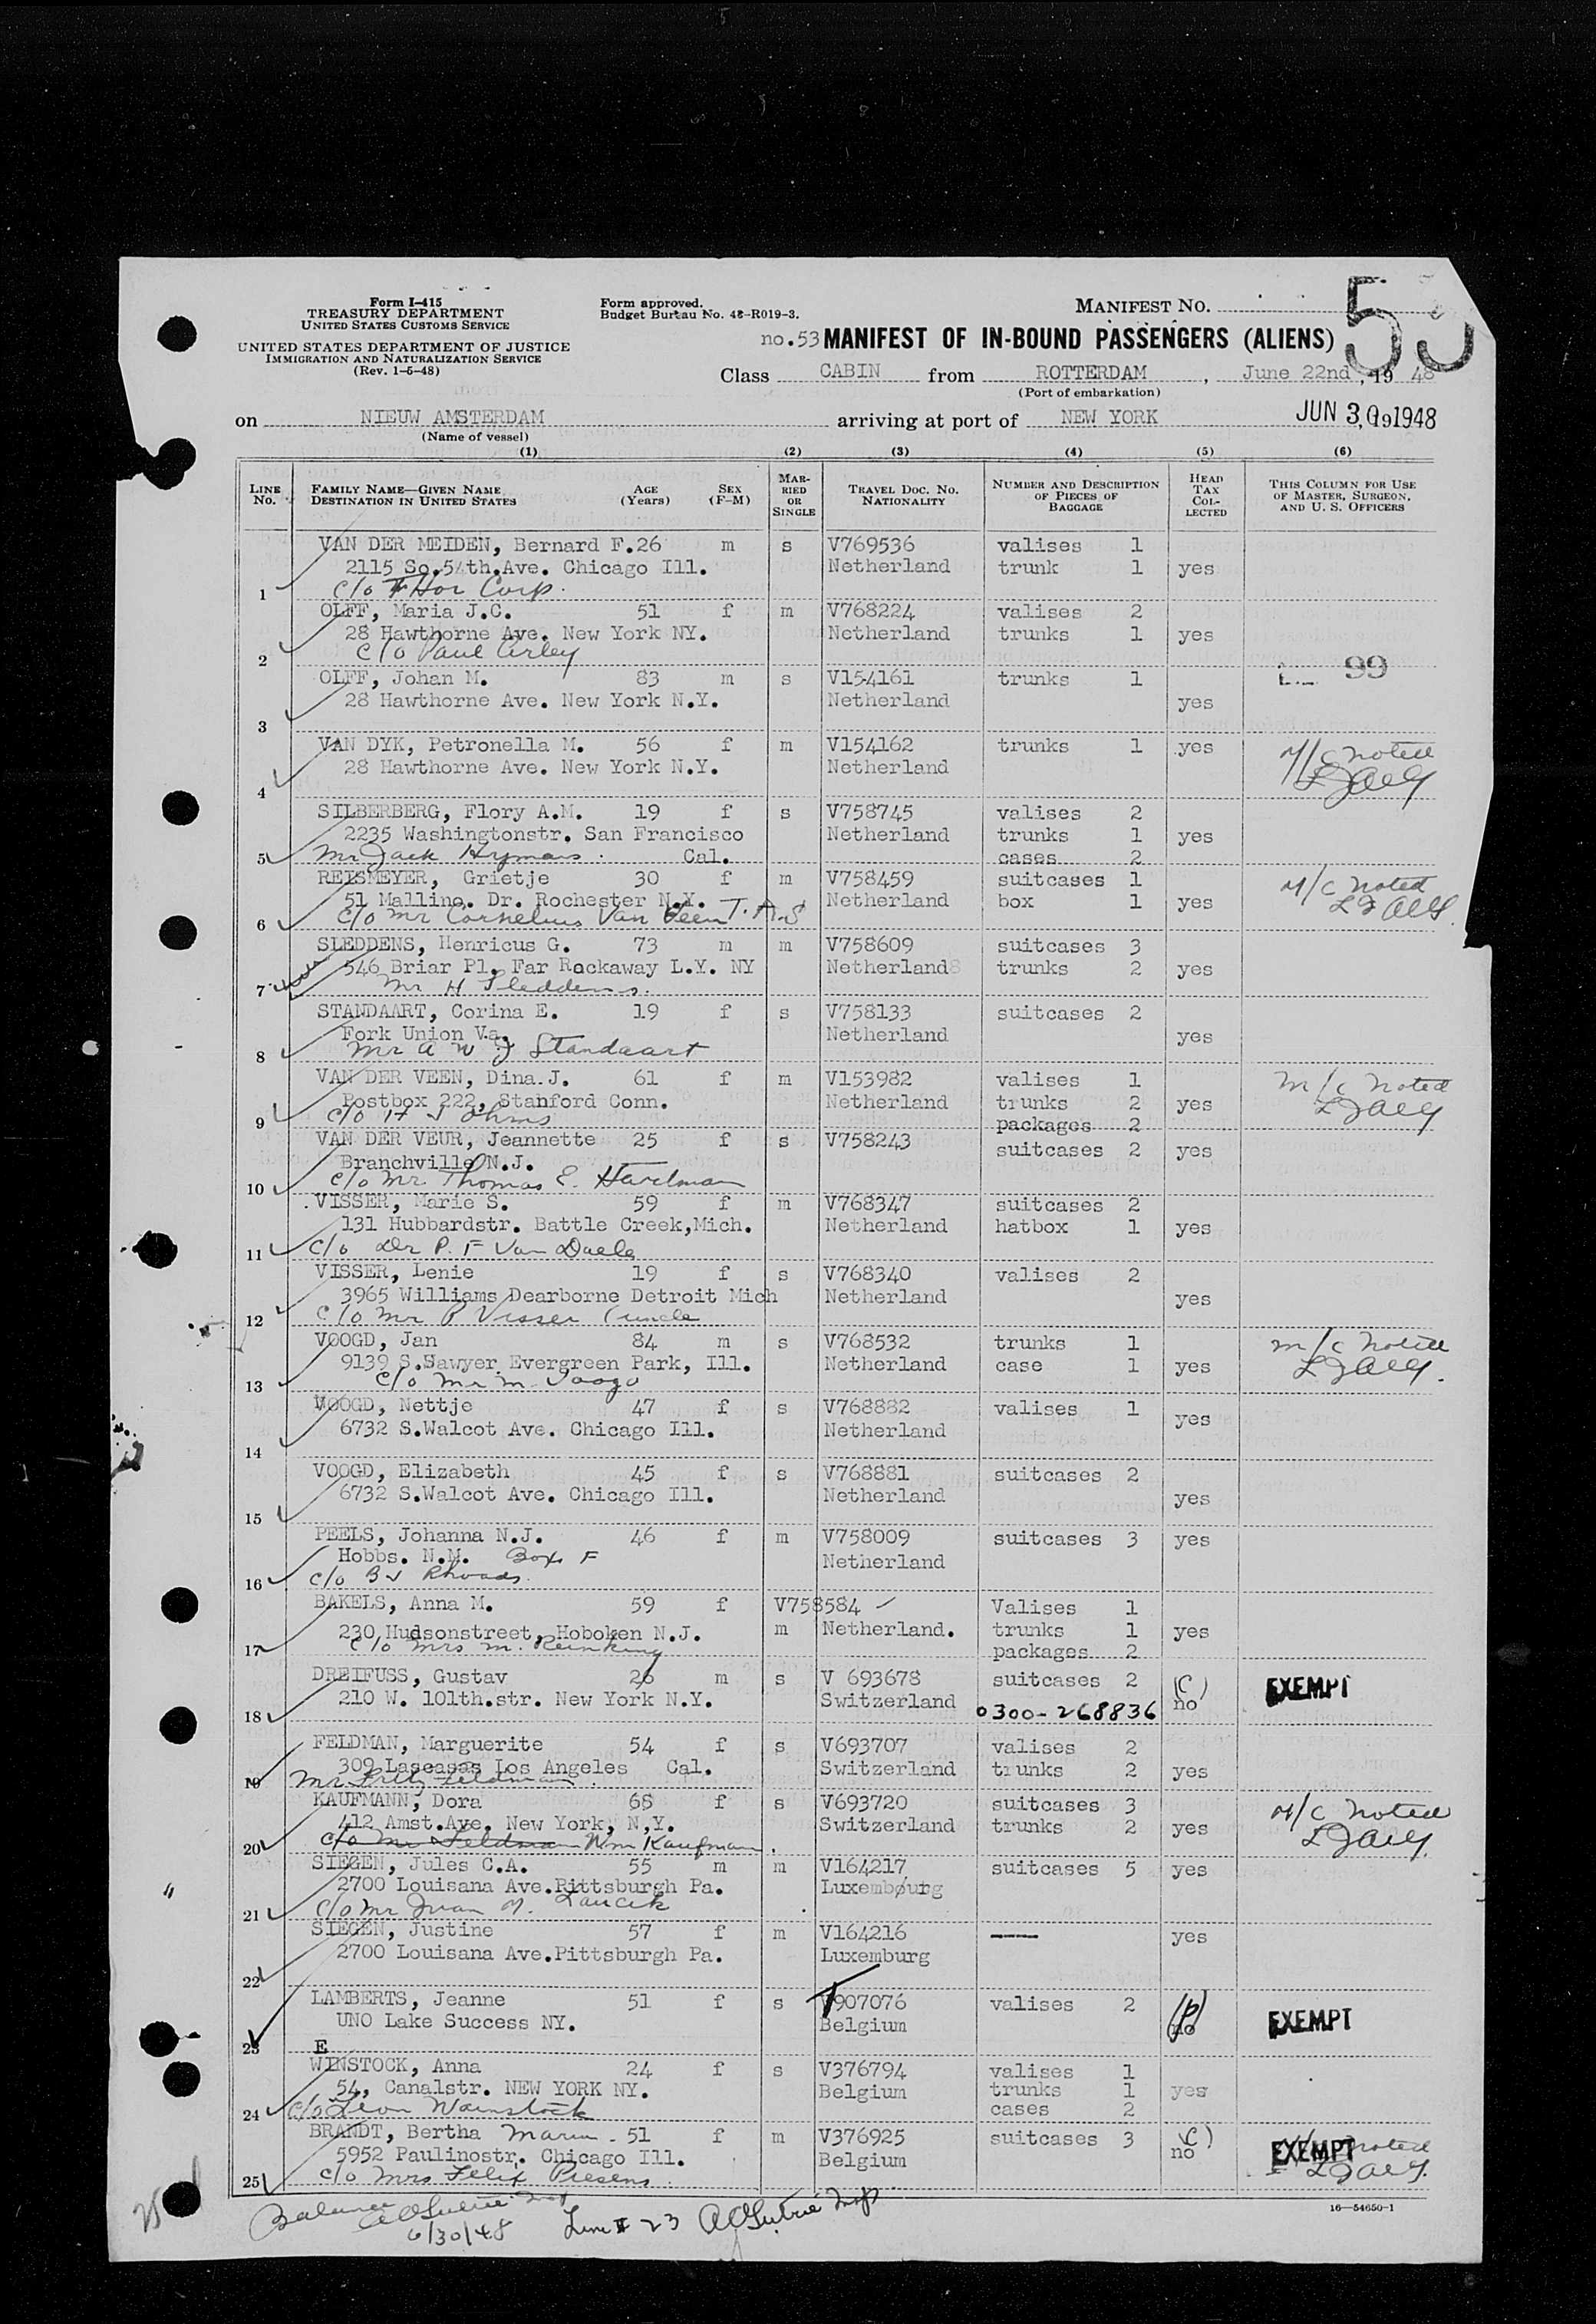 Form I-415
TREASURY DEPARTMENT
UNITED STATES CUSTOMS SERVICE
UNITED STATES DEPARTMENT OF JUSTICE
IMMIGRATION AND NATURALIZATION SERVICE
(Rev. 1-5-48)
Form approved.
Budget Bureau No. 43-R019-3.
MANIFEST NO. 53
no.53 MANIFEST OF IN-BOUND PASSENGERS (ALIENS)
Class CABIN from ROTTERDAM, June 22nd, 19 48
(Port of embarkation)
on NIEUW AMSTERDAM arriving at port of NEW YORK JUN 30 1948
(Name of vessel)
(1) (2) (3) (4) (5) (6)
LINE NO. FAMILY NAME—GIVEN NAME DESTINATION IN UNITED STATES AGE (Years) SEX (F-M) MARRIED OR SINGLE TRAVEL DOC. NO. NATIONALITY NUMBER AND DESCRIPTION OF PIECES OF BAGGAGE HEAD TAX COLLECTED THIS COLUMN FOR USE OF MASTER, SURGEON, AND U. S. OFFICERS
VAN DER MEIDEN, Bernard F. 26 m s V769536 valises 1
2115 So.54th.Ave. Chicago Ill. Netherland trunk 1 yes
1 c/o Hor Corp.
OLFF, Maria J.C. 51 f m V768224 valises 2
28 Hawthorne Ave. New York NY. Netherland trunks 1 yes
2 c/o Paul
99
OLFF, Johan M. 83 m s V154161 trunks 1
28 Hawthorne Ave. New York N.Y. Netherland yes
3
VAN DYK, Petronella M. 56 f m V154162 trunks 1 yes M/C noted
28 Hawthorne Ave. New York N.Y. Netherland
4
SILBERBERG, Flory A.M. 19 f s V758745 valises 2
2235 Washingtonstr. San Francisco Netherland trunks 1 yes
5 Mr Jack Hymans. Cal. cases 2
REISMEYER, Grietje 30 f m V758459 suitcases 1 M/C noted
51 Mallino. Dr. Rochester N.Y. Netherland box 1 yes
6 c/o Mr Cornelius Van Veen
SLEDDENS, Henricus G. 73 m m V758609 suitcases 3
546 Briar Pl. Far Rockaway L.Y. NY Netherland trunks 2 yes
7 Mr H Sleddens.
STANDAART, Corina E. 19 f s V758133 suitcases 2
Fork Union Va. Netherland yes
8 Mr A W J Standaart
VAN DER VEEN, Dina J. 61 f m V153982 valises 1 M/C noted
Postbox 222, Stanford Conn. Netherland trunks 2 yes
9 c/o H J Ohms packages 2
VAN DER VEUR, Jeannette 25 f s V758243 suitcases 2 yes
Branchville N.J.
10 c/o Mr. Thomas E. Hardman
VISSER, Marie S. 59 f m V768347 suitcases 2
131 Hubbardstr. Battle Creek,Mich. Netherland hatbox 1 yes
11 c/o Dr P. F Van Daele
VISSER, Lenie 19 f s V768340 valises 2
3965 Williams Dearborne Detroit Mich Netherland yes
12 c/o Mr P Visser (uncle
VOOGD, Jan 84 m s V768532 trunks 1 M/C noted
9139 S.Sawyer Evergreen Park, Ill. Netherland case 1 yes
13 c/o Mr M. Voogd
VOOGD, Nettje 47 f s V768882 valises 1 yes
6732 S.Walcot Ave. Chicago Ill. Netherland
14
VOOGD, Elizabeth 45 f s V768881 suitcases 2
6732 S.Walcot Ave. Chicago Ill. Netherland yes
15
PEELS, Johanna N.J. 46 f m V758009 suitcases 3 yes
Hobbs. N.M. Box F Netherland
16 c/o B J Rhoads.
BAKELS, Anna M. 59 f V758584 Valises 1
230 Hudsonstreet, Hoboken N.J. m Netherland. trunks 1 yes
17 c/o Mrs M. Reinking packages 2
DREIFUSS, Gustav 26 m s V 693678 suitcases 2 (C) EXEMPT
210 W. 101th.str. New York N.Y. Switzerland 0300-268836 no
18
FELDMAN, Marguerite 54 f s V693707 valises 2
309 Lascasas Los Angeles Cal. Switzerland trunks 2 yes
19 Mr Fritz Feldman.
KAUFMANN, Dora 65 f s V693720 suitcases 3 M/C noted
412 Amst.Ave. New York, N.Y. Switzerland trunks 2 yes
20 c/o Mr Feldman Wm Kaufman.
SIEGEN, Jules C.A. 55 m m V164217 suitcases 5 yes
2700 Louisana Ave.Pittsburgh Pa. Luxembourg
21 c/o Mr
SIEGEN, Justine 57 f m V164216 —— yes
2700 Louisana Ave.Pittsburgh Pa. Luxemburg
22
LAMBERTS, Jeanne 51 f s 907076 valises 2 (p) EXEMPT
UNO Lake Success NY. Belgium no
23 E
WINSTOCK, Anna 24 f s V376794 valises 1
54, Canalstr. NEW YORK NY. Belgium trunks 1 yes
24 c/o Leon Wainstock cases 2
BRANDT, Bertha 51 f m V376925 suitcases 3 (C) EXEMPT noted
5952 Paulinostr. Chicago Ill. Belgium no
25 c/o Mrs Felix Piesens.
16—54650-1
25 Balance
6/30/48 Line # 23